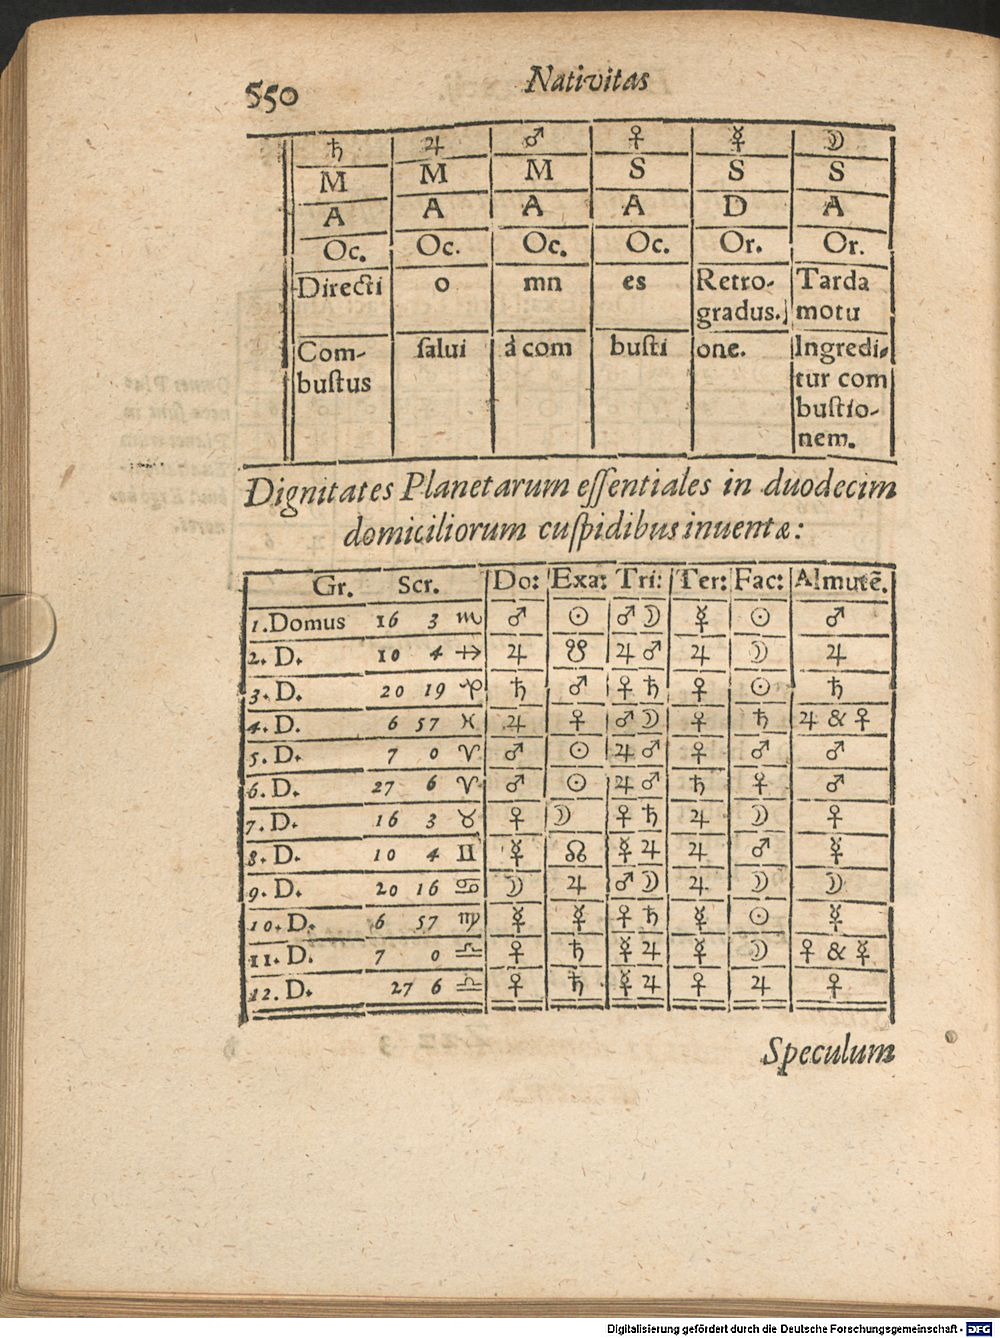 550
Nativitas
♄ ♃ ♂ ♀ ☿ ☽
M M M S S S
A A A A D A
Oc. Oc. Oc. Oc. Or. Or.
Directi o mn es Retro- Tarda
gradus. motu
Com- ſalui à com buſti one. Ingredi-
buſtus tur com
buſtio-
nem.
Dignitates Planetarum eſſentiales in duodecim
domiciliorum cuſpidibus inuentæ:
Gr. Scr. Do: Exa: Tri: Ter: Fac: Almutẽ.
1. Domus 16 3 ♏ ♂ ☉ ♂ ☽ ☿ ☉ ♂
2. D. 10 4 ♐ ♃ ☋ ♃ ♂ ♃ ☽ ♃
3. D. 20 19 ♑ ♄ ♂ ♀ ♄ ♀ ☉ ♄
4. D. 6 57 ♓ ♃ ♀ ♂ ☽ ♀ ♄ ♃ & ♀
5. D. 7 0 ♈ ♂ ☉ ♃ ♂ ♀ ♂ ♂
6. D. 27 6 ♈ ♂ ☉ ♃ ♂ ♄ ♀ ♂
7. D. 16 3 ♉ ♀ ☽ ♀ ♄ ♃ ☽ ♀
8. D. 10 4 ♊ ☿ ☊ ☿ ♃ ♃ ♂ ☿
9. D. 20 16 ♋ ☽ ♃ ♂ ☽ ♃ ☽ ☽
10. D. 6 57 ♍ ☿ ☿ ♀ ♄ ☿ ☉ ☿
11. D. 7 0 ♎ ♀ ♄ ☿ ♃ ☿ ☽ ♀ & ☿
12. D. 27 6 ♎ ♀ ♄ ☿ ♃ ♀ ♃ ♀
Speculum
Digitalisierung gefördert durch die Deutsche Forschungsgemeinschaft - DFG